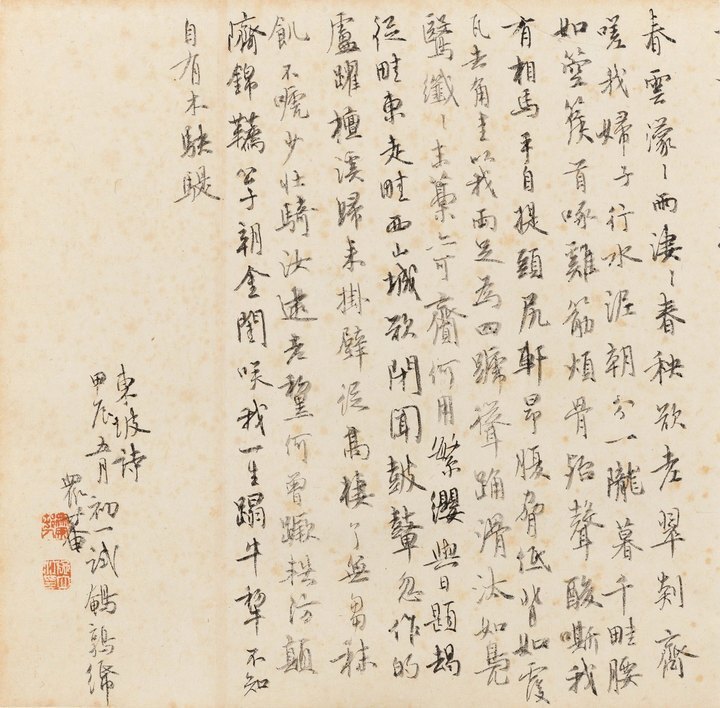 春雲濛〻雨淒〻春秧欲老翠剡齊
嗟我婦子行水泥朝分一壠暮千畦腰
如箜篌首啄雞筋煩骨殆聲酸嘶我
有相馬手自提頭尻軒昂腹脅低背如覆
瓦去角圭以我兩足為四蹏聳踊滑汰如鳧
鷖纖〻束藁亦可齎何用繁纓與日題朅
從畦東走畦西山城欲閉聞鼓鼙忽作的
盧躍檀溪歸來掛壁從高棲了無芻秣
飢不嗁少壯騎汝逮老黧何曾蹶軼防顛
隮錦韉公子朝金閨咲我一生蹋牛犂不知
自有木駃騠
東坡詩
甲辰五月初一試鵪鶉